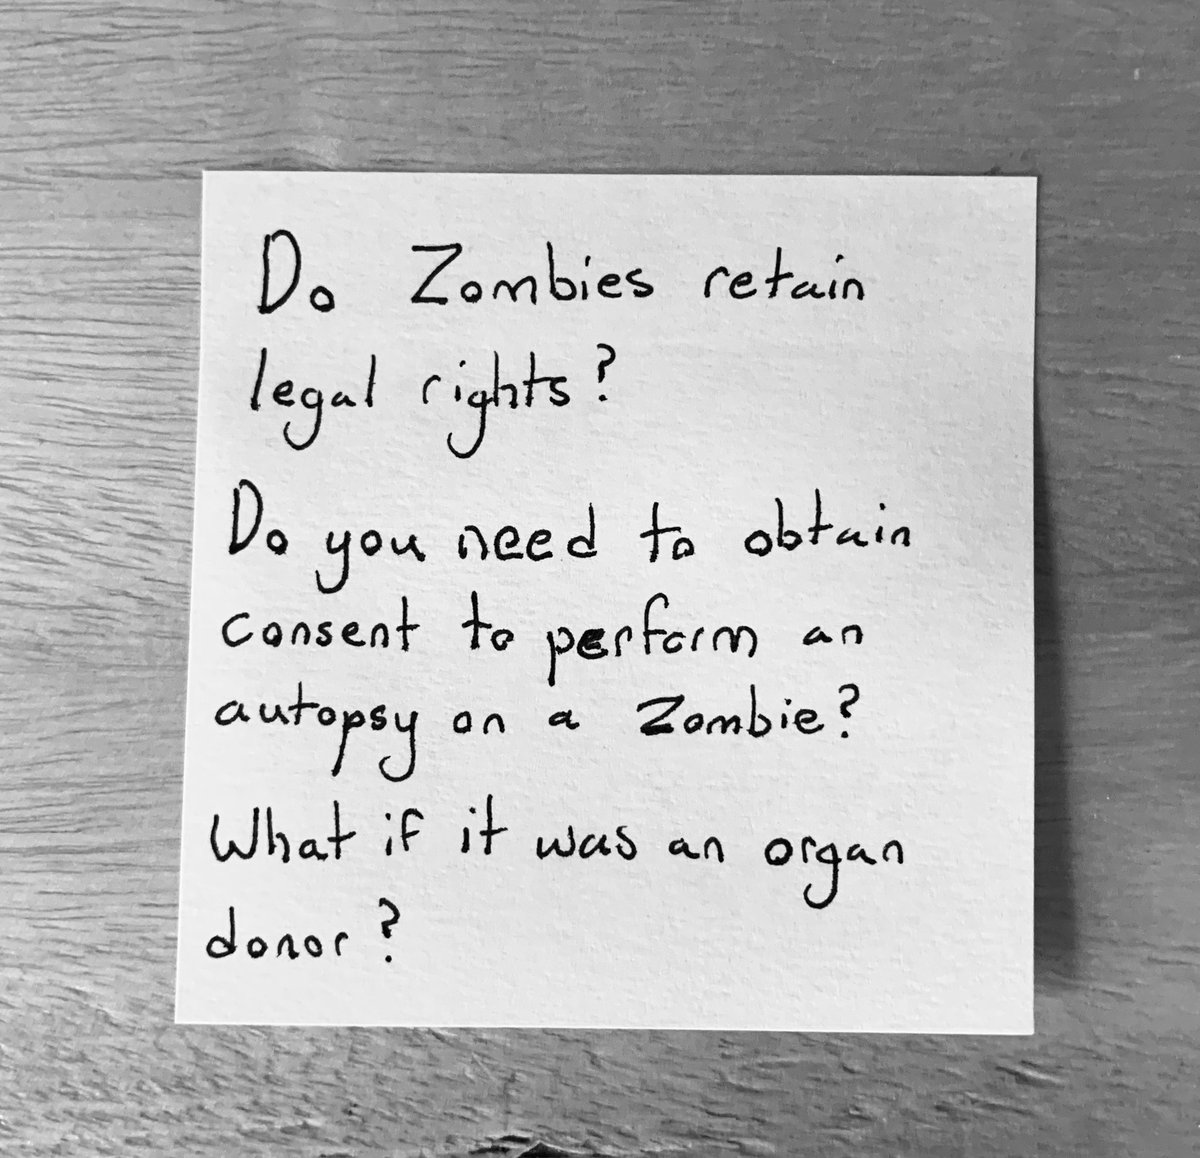 Do Zombies retain
legal rights?
Do you need to obtain
consent to perform an
autopsy on a Zombie?
What if it was an organ
donor?